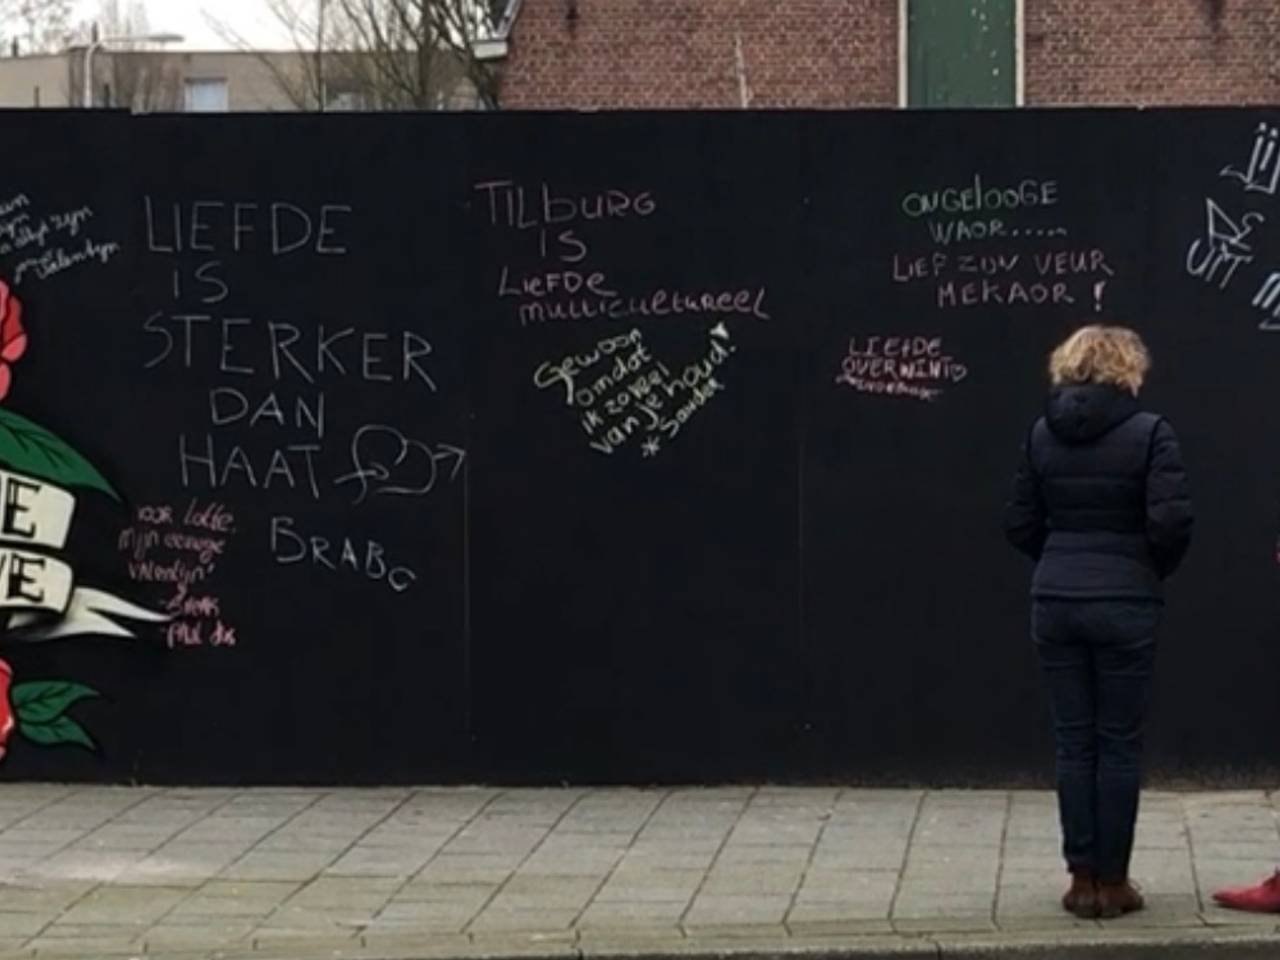 Valentijn
E
VE
LIEFDE
IS
STERKER
DAN
HAAT
BRABO
voor Lotte,
mijn eeuwige
Valentijn!
TILBURG
IS
LIEFDE
multicultureel
Gewoon
omdat
ik zoveel
van je houd!
* Sandra
ONGELOOGE
WAOR.....
LIEF ZIJN VEUR
MEKAOR !
LIEFDE
OVERWINT
jij
UIT